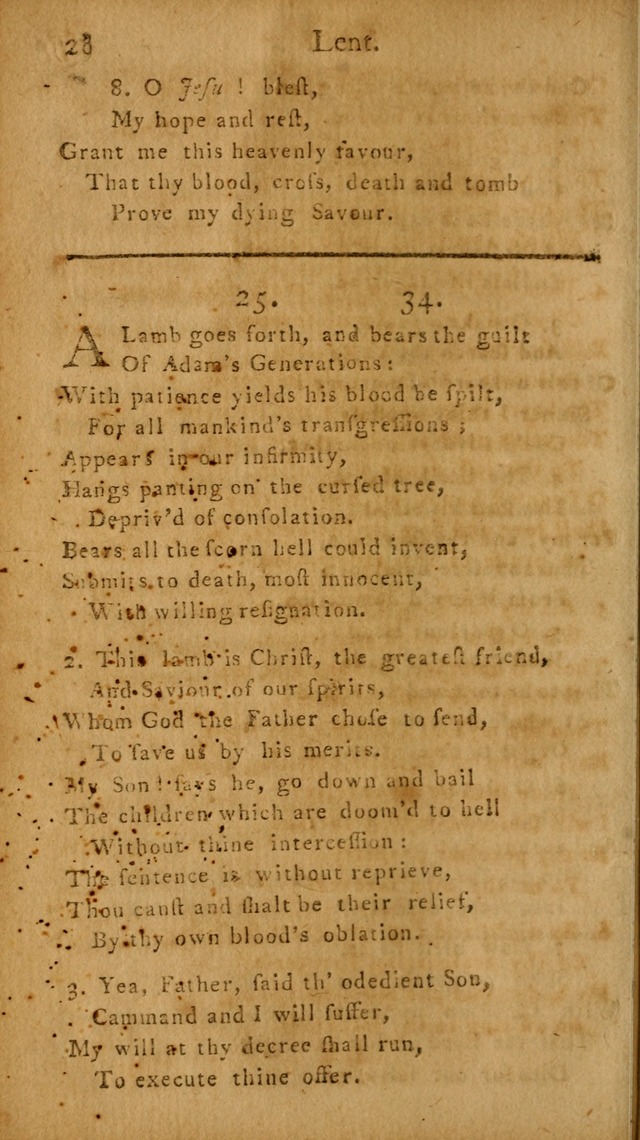 28 Lent.
8. O Jeſu ! bleſt,
My hope and reſt,
Grant me this heavenly favour,
That thy blood, croſs, death and tomb
Prove my dying Savour.
25. 34.
A Lamb goes forth, and bears the guilt
Of Adam's Generations:
With patience yields his blood be ſpilt,
For all mankind's tranſgreſſions ;
Appears in our infirmity,
Hangs panting on the curſed tree,
Depriv'd of conſolation.
Bears all the ſcorn hell could invent,
Submits to death, moſt innocent,
With willing reſignation.
2. This lamb is Chriſt, the greateſt friend,
And Saviour of our ſpirits,
Whom God the Father choſe to ſend,
To ſave us by his merits.
My Son ! ſays he, go down and bail
The children which are doom'd to hell
Without thine interceſſion :
The ſentence is without reprieve,
Thou canſt and ſhalt be their relief,
By thy own blood's oblation.
3. Yea, Father, ſaid th' odedient Son,
Cammand and I will ſuffer,
My will at thy decree ſhall run,
To execute thine offer.